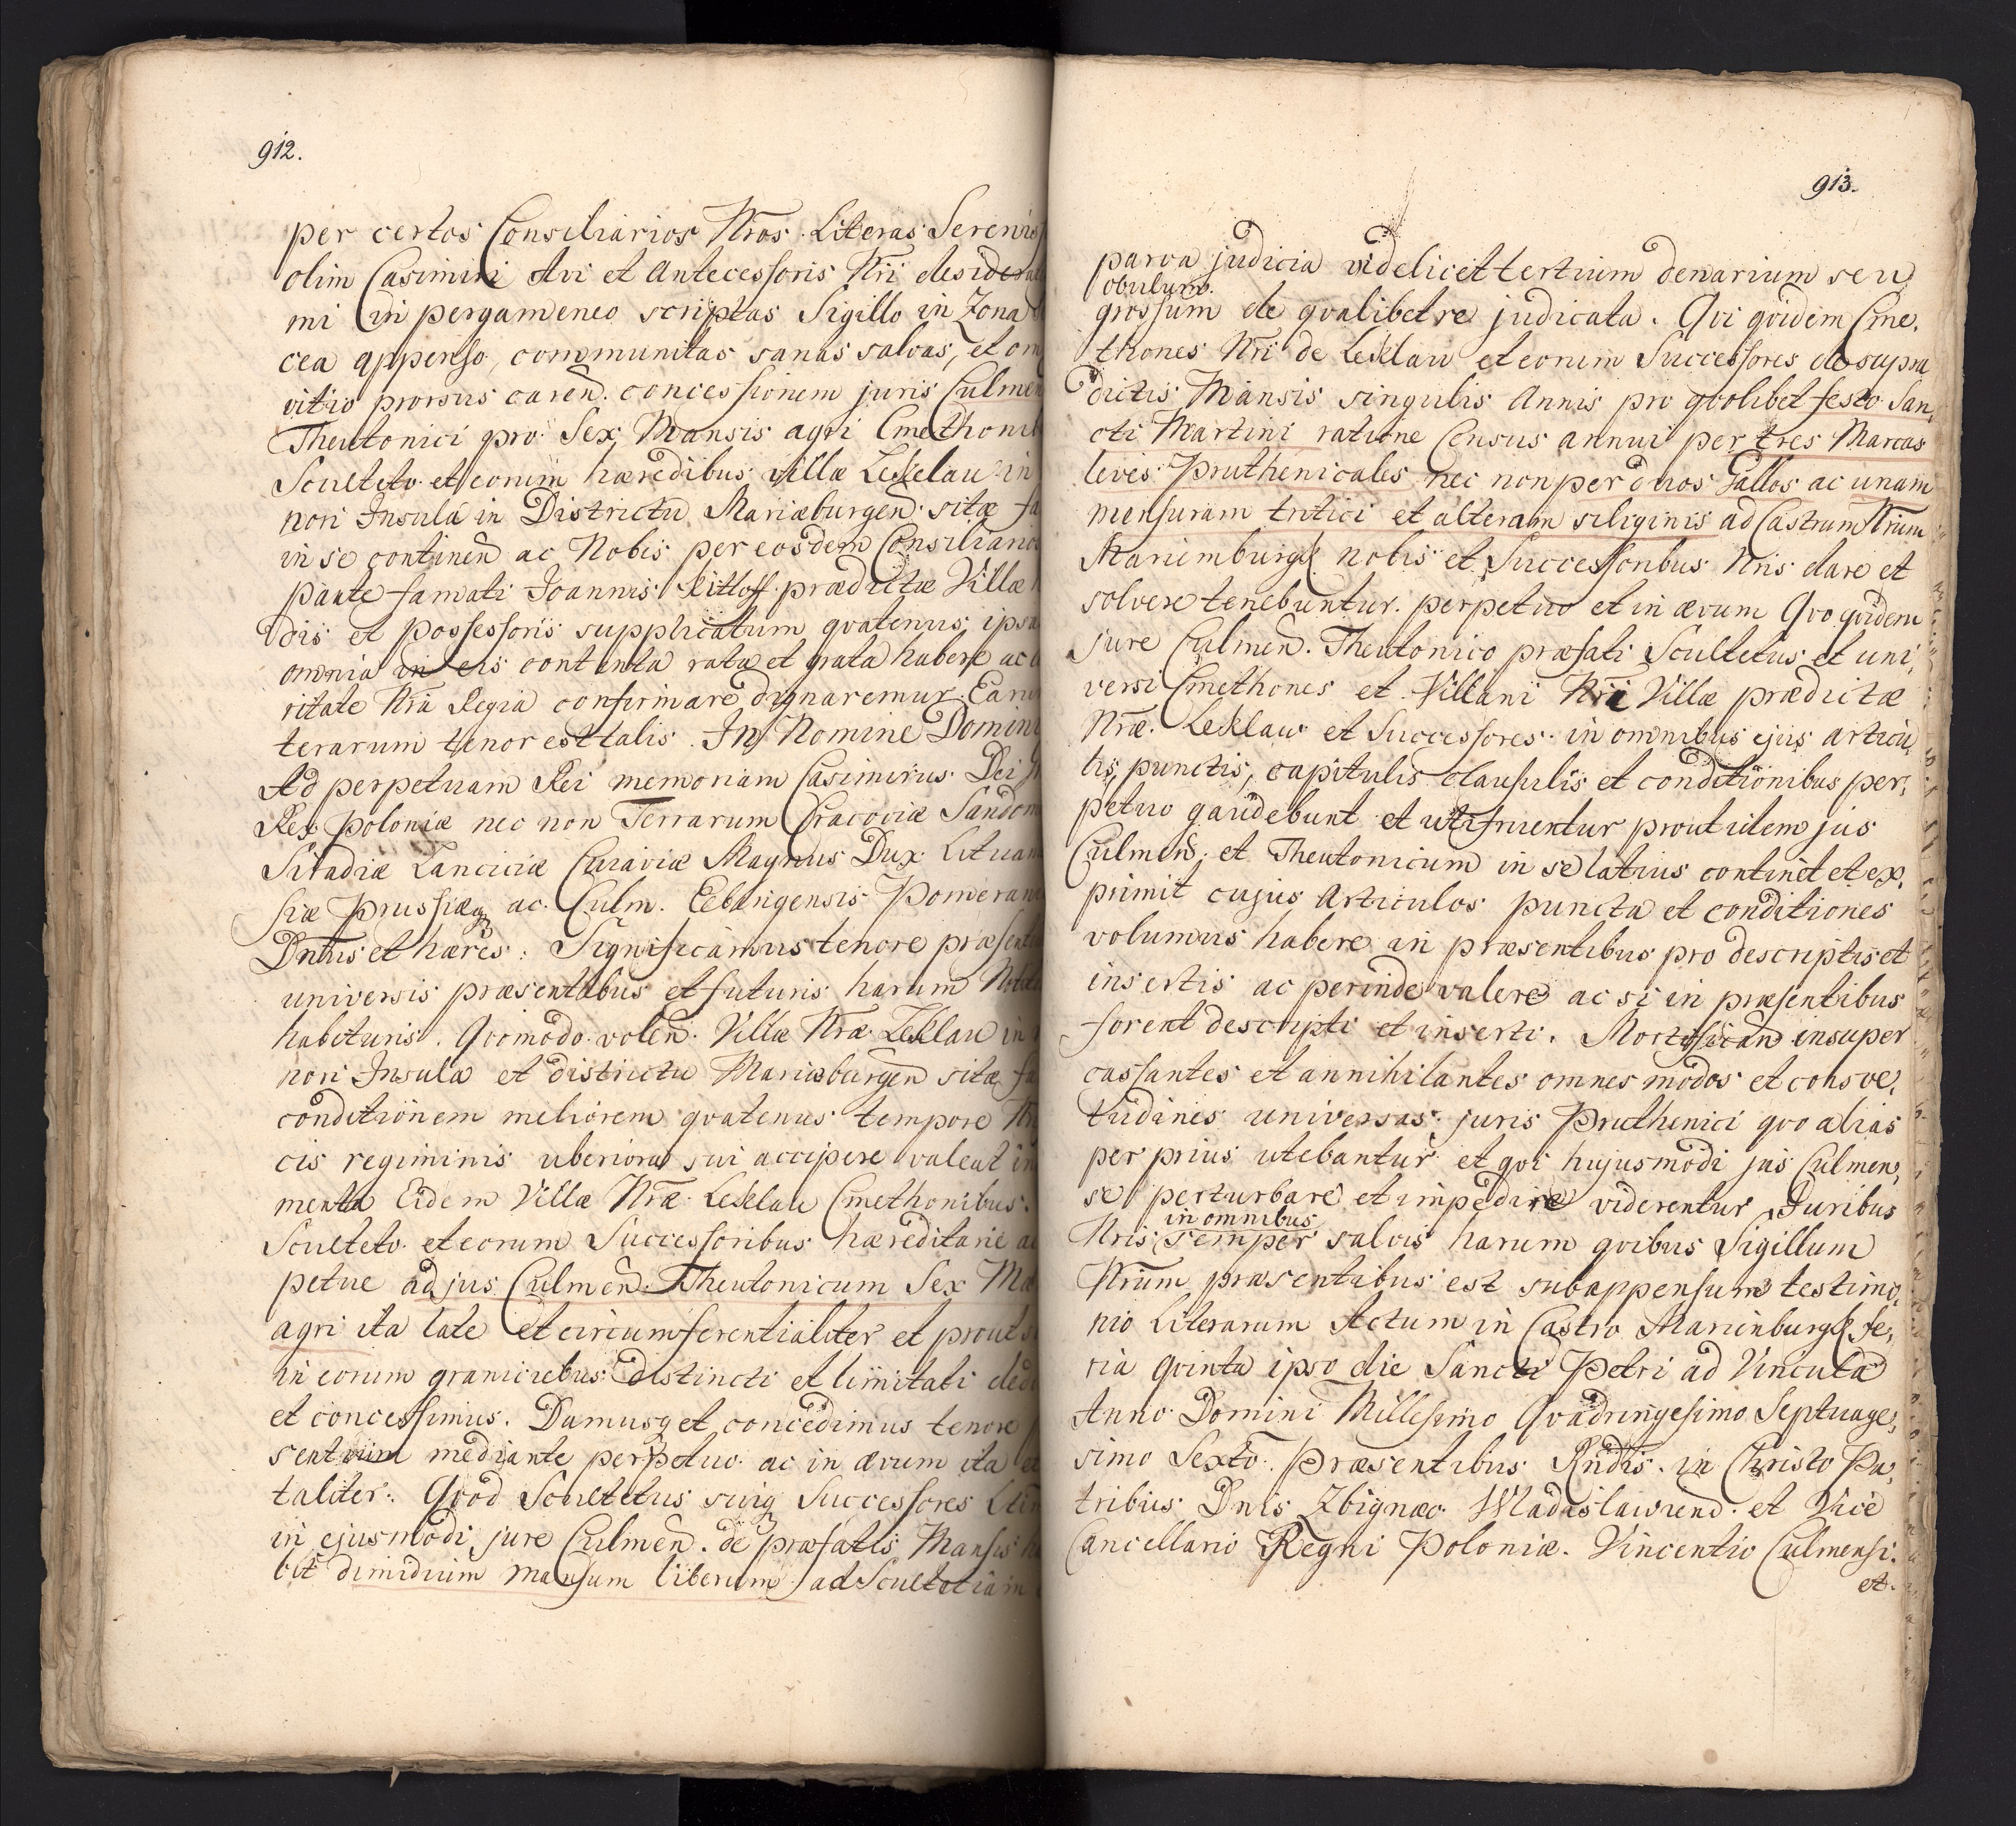 912.
per certos Consiliarios Nros Literas Serenis
olim Casimiri Avi et Antecessoris Nri desidera
mi in pergameneo scriptas Sigillo in Zona
cea appenso, communitas sanas salvas, et om
vitio prorsus caren̄. concessionem juris Culmen
Theutonici pro Sex Mansis agri Cmethonib
Sculteto et eorum hæredibus villæ Leklau in
nori Insula in Districtu Mariæburgen̄. sitæ fa
in se continen̄ ac Nobis per eosdem Consiliario
parte famati Joannis Kitloff prædictæ Villæ
dis et possessoris supplicatum qvatenus, ipsa
omnia in eis contenta rata et grata habere ac
ritate Nra Regia confirmare dignaremur. Earu
terarum tenor est talis. In Nomine Domini
Ad perpetuam Rei memoriam Casimirus Dei
Rex Poloniæ nec non Terrarum Cracoviæ Sandom
Siradiæ Lanciciæ Cuiaviæ Magnus Dux Lituan
siæ Prussiæq ac Culm. Elbingensis Pomeran
Dnus et hæres: Significamus tenore præsent
universis præsentibus et futuris harum Notit
habituris. Qvomodo volen̄. Villæ Nræ Leklau in
nori Insula et districtu Mariæburgen̄ sitæ fa
conditionem meliorem qvatenus tempore N
cis regiminis uberiora sui accipere valeat in
menta Eidem Villæ Nræ Leklau Cmethonibus
Sculteto et eorum Successoribus hæreditarie ac
petue ad jus Culmen̄. Theutonicum Sex Ma
agri ita late et circumferentialiter et prout
in eorum granicrebus distincti et limitati dedi
et concessimus. Damusq et concedimus tenore
sentium mediante perpetuo ac in ævum ita et
taliter. Qvod Scultetus suiq Successores
in ejusmodi jure Culmen̄. de præfatis Mansis ha
bit dimidium mansum liberum ad Scultetiam
913.
parva judicia videlicet tertium denarium seu
obulum
grossum de qvalibet re judicata. Qvi qvidem Cme,
thones Nri de Leklau et eorum Successores de supra
dictis Mansis singulis Annis pro qvolibet festo San,
cti Martini ratione Census annui per tres Marcas
leves Pruthenicales nec non per duos Gallos ac unam
mensuram tritici et alteram siliginis ad Castrum Nrum
Mariemburg nobis et Successoribus Nris dare et
solvere tenebuntur perpetuo et in ævum Qvo qvidem
jure Culmen̄. Theutonico præfati Scultetus et uni,
versi Cmethones et Villani Nri Villæ prædictæ
Nræ Leklau et Successores in omnibus ejus articu,
lis, punctis, capitulis clausulis et conditionibus per,
petuo gaudebunt et utifruentur prout idem jus
Culmen̄. et Theutonicum in se latius continet et ex,
primit cujus Articulos puncta et conditiones
volumus habere in præsentibus pro descriptis et
insertis ac perinde valere ac si in præsentibus
forent descripti et inserti. Mortifican̄ insuper
cassantes et annihilantes omnes modos et consve,
tudines universas juris Pruthenici qvo alias
per prius utebantur et qvi hujusmodi jus Culmen,
se perturbare et impedire viderentur, Juribus
in omnibus
Nris semper salvis harum qvibus Sigillum
Nrum præsentibus est subappensum testimo,
nio Literarum Actum in Castro Marienburg fe,
ria qvinta ipso die Sancti Petri ad Vincula
Anno Domini Millesimo Qvadringesimo Septuage,
simo Sexto. Præsentibus Rndis. in Christo Pa,
tribus Dnis Zbignæo Wladislavien̄d. et Vice
Cancellario Regni Poloniæ. Vincentio Culmensi.
et.